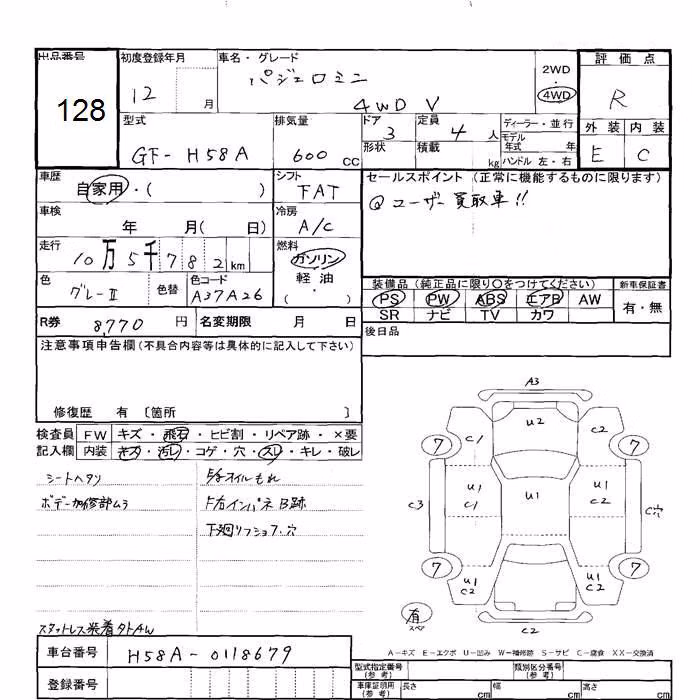 出品番号
128
初度登録年月
12 月
車名・グレード
パジェロミニ
4WD V
2WD
・
4WD
評価点
R
型式
GF-H58A
排気量
600 cc
ドア
3
形状
定員
4 人
積載
kg
ディーラー・並行
モデル
年式 年
ハンドル 左・右
外装 内装
E C
車歴
自家用・( )
シフト
FAT
セールスポイント (正常に機能するものに限ります)
@ユーザー買取車!!
車検
年 月( 日)
冷房
A/C
走行
10万5千782km
燃料
ガソリン
軽油
( ・ )
色
グレーII
色替
色コード
A37A26
装備品 (純正品に限り○をつけてください)
PS PW ABS エアB AW
SR ナビ TV カワ
新車保証書
有・無
R券
8,770 円
名変期限 月 日
後日品
注意事項申告欄(不具合内容等は具体的に記入して下さい)
修復歴 有 〔箇所 〕
検査員
記入欄
FW キズ・飛石・ヒビ割・リペア跡・×要
内装 キズ・汚レ・コゲ・穴・スレ・キレ・破レ
シートヘタリ
ボデー加修部ムラ
オイルもれ
F右インパネB跡
下廻リフショク・穴
スタットレス装着タトAW
A3
U2
C1
C2
7
7
U1
C1
U1
U1
C2
C3
C穴
7
7
U1
C2
U1
C2
有
スペア
C2
A-キズ E-エクボ U-凹み W-補修跡 S-サビ C-腐食 XX-交換済
車台番号
H58A-0118679
登録番号
型式指定番号
(参考)
類別区分番号
(参考)
車庫証明用
(参考)
長さ cm
幅 cm
高さ cm